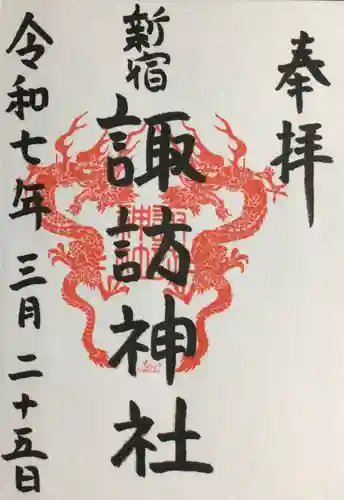 奉拝
新宿
諏訪神社
令和七年三月二十五日